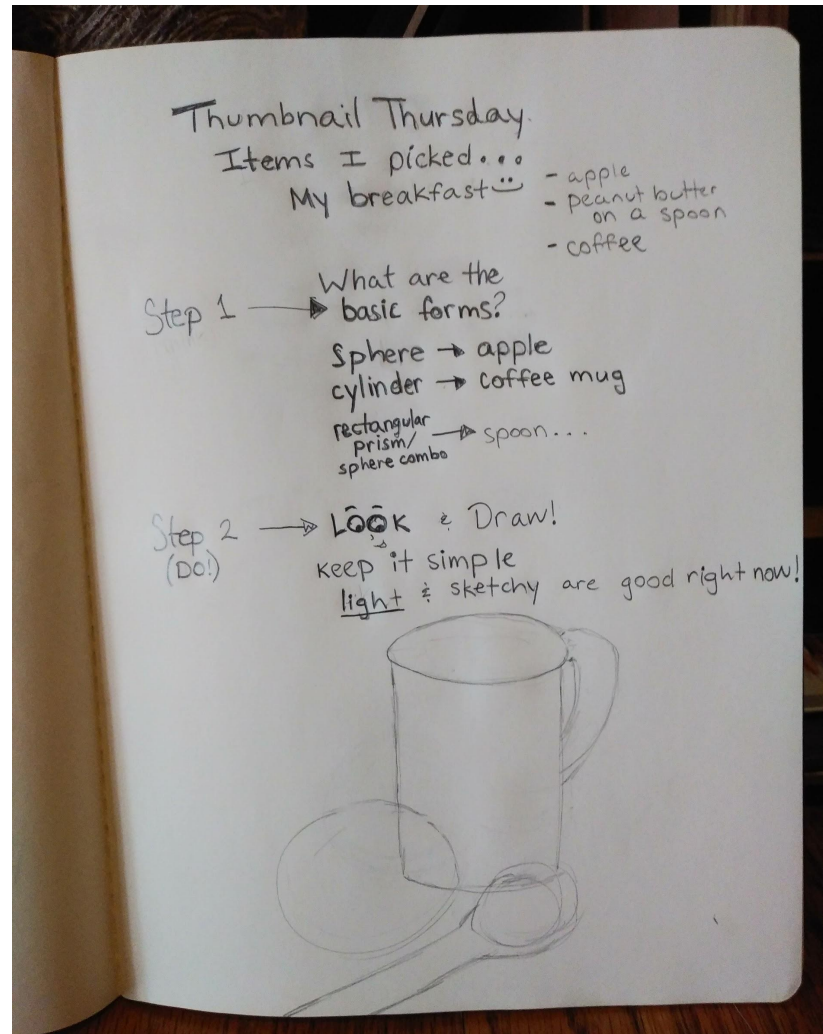 Thumbnail Thursday.
Items I picked...
My breakfast
- apple
- peanut butter
on a spoon
- coffee
Step 1
What are the
basic forms?
Sphere → apple
cylinder → coffee mug
rectangular
prism/
sphere combo
→ spoon...
Step 2
(DO!)
LOOK & Draw!
keep it simple
light & sketchy are good right now!